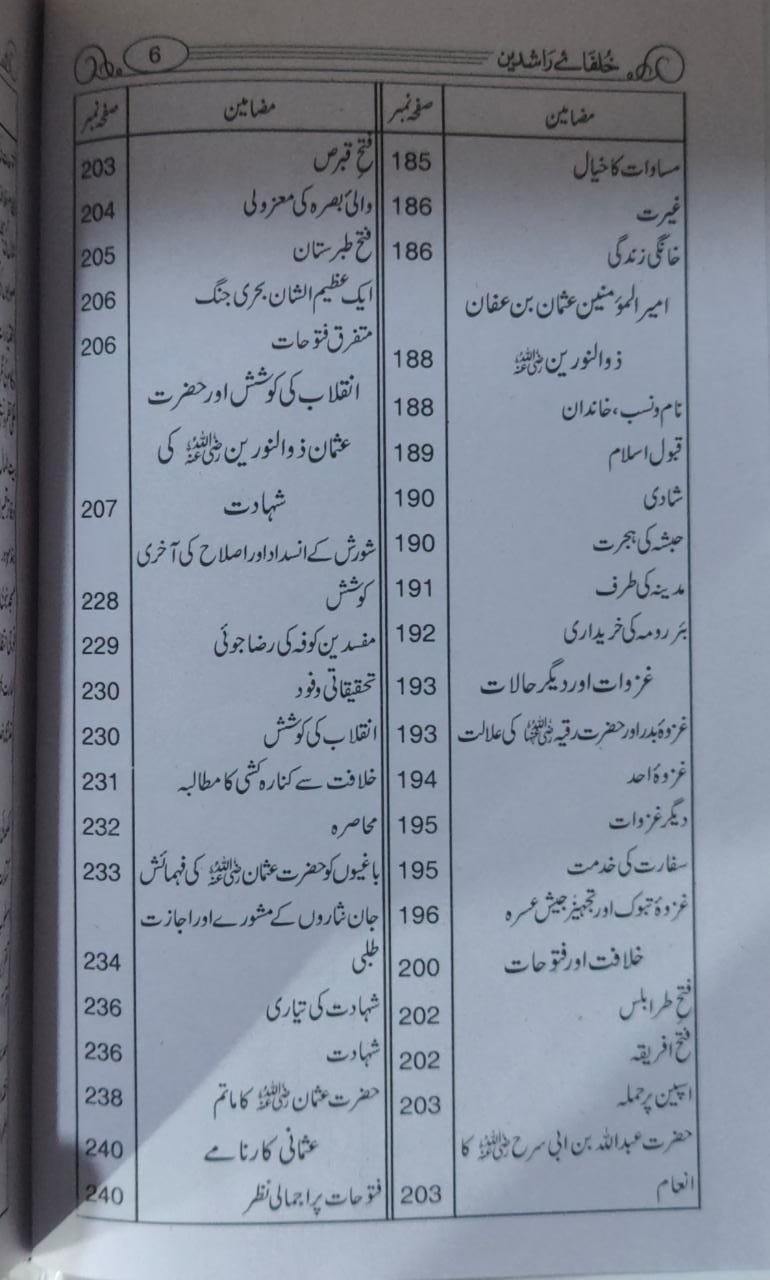 خُلفَائے رَاشدین 6
مضامین صفحہ نمبر
مساوات کا خیال 185
غیرت 186
خانگی زندگی 186
امیر المؤمنین عثمان بن عفان
ذوالنورین رضی اللہ عنہ 188
نام و نسب، خاندان 188
قبول اسلام 189
شادی 190
حبشہ کی ہجرت 190
مدینہ کی طرف 191
بئر رومہ کی خریداری 192
غزوات اور دیگر حالات 193
غزوۂ بدر اور حضرت رقیہ رضی اللہ عنہا کی علالت 193
غزوۂ احد 194
دیگر غزوات 195
سفارت کی خدمت 195
غزوۂ تبوک اور تجہیز جیش عسرہ 196
خلافت اور فتوحات 200
فتحِ طرابلس 202
فتحِ افریقہ 202
اسپین پر حملہ 203
حضرت عبداللہ بن ابی سرح رضی اللہ عنہ کا
انعام 203
مضامین صفحہ نمبر
فتحِ قبرص 203
والیٔ بصرہ کی معزولی 204
فتح طبرستان 205
ایک عظیم الشان بحری جنگ 206
متفرق فتوحات 206
انقلاب کی کوشش اور حضرت
عثمان ذوالنورین رضی اللہ عنہ کی
شہادت 207
شورش کے انسداد اور اصلاح کی آخری
کوشش 228
مفسدین کوفہ کی رضا جوئی 229
تحقیقاتی وفود 230
انقلاب کی کوشش 230
خلافت سے کنارہ کشی کا مطالبہ 231
محاصرہ 232
باغیوں کو حضرت عثمان رضی اللہ عنہ کی فہمائش 233
جان نثاروں کے مشورے اور اجازت
طلبی 234
شہادت کی تیاری 236
شہادت 236
حضرت عثمان رضی اللہ عنہ کا ماتم 238
عثمانی کارنامے 240
فتوحات پر اجمالی نظر 240